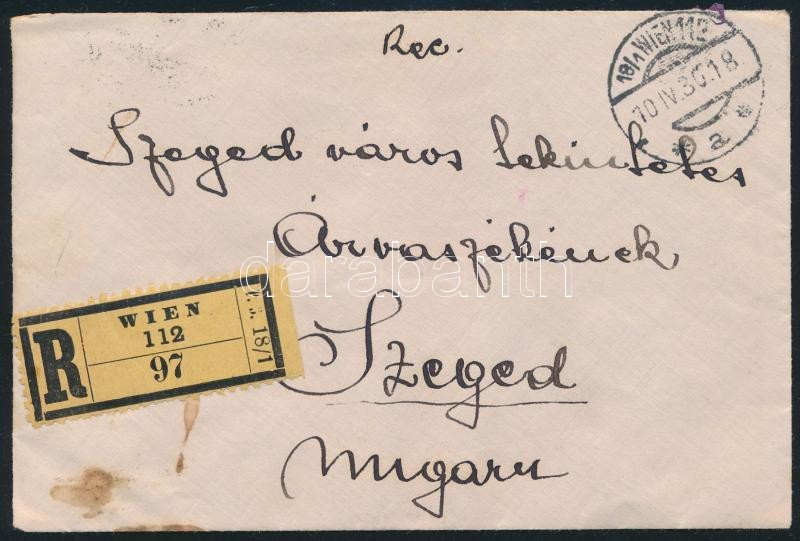 Rec.
18/1 WIEN 112
10.IV.30.18
* a *
Szeged város tekintetes
Árvaszékének
Szeged
Ungarn
R
WIEN
112
97
18/1
darabanth